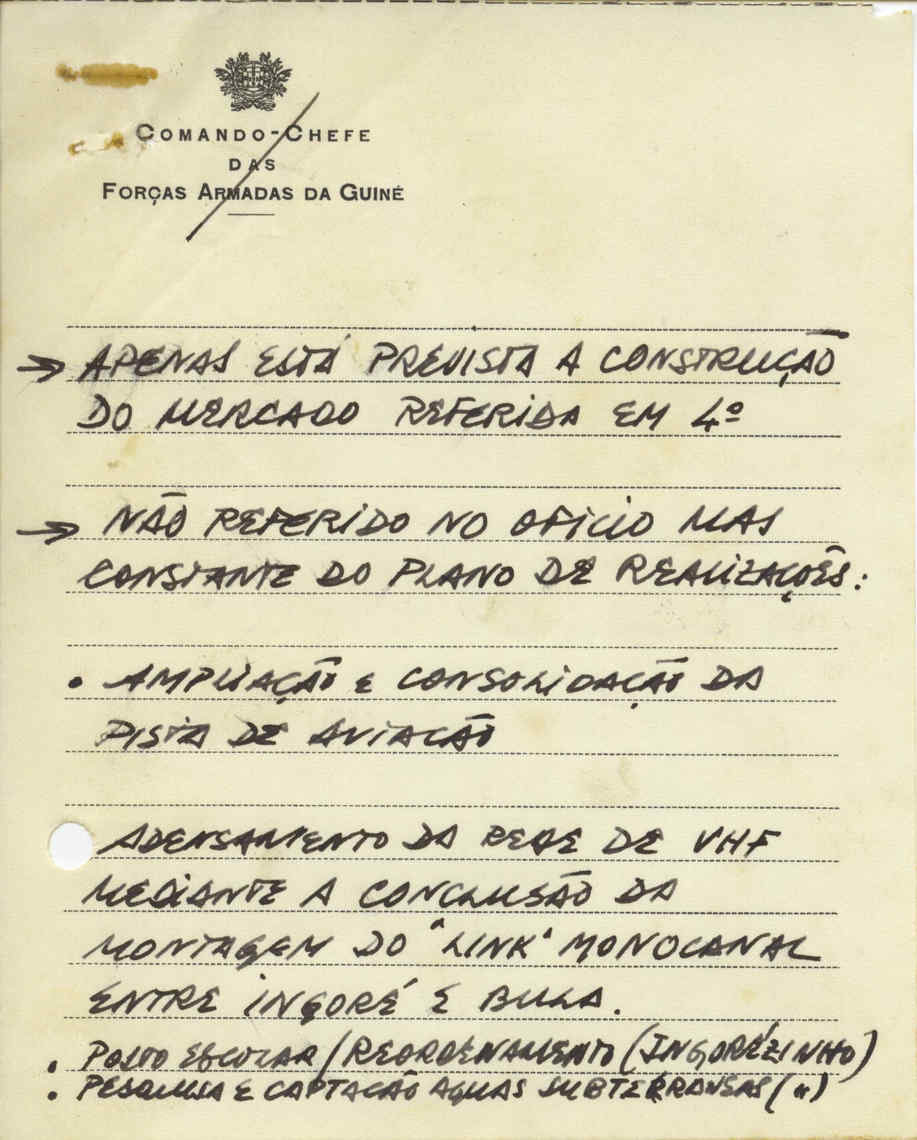 COMANDO-CHEFE
DAS
FORÇAS ARMADAS DA GUINÉ
→ APENAS ESTÁ PREVISTA A CONSTRUÇÃO
DO MERCADO REFERIDA EM 4º
→ NÃO REFERIDO NO OFICIO MAS
CONSTANTE DO PLANO DE REALIZAÇÕES:
• AMPLIAÇÃO E CONSOLIDAÇÃO DA
PISTA DE AVIAÇÃO
ADENSAMENTO DA REDE DE VHF
MEDIANTE A CONCLUSÃO DA
MONTAGEM DO "LINK" MONOCANAL
ENTRE INGORÉ E BULA.
• POSTO ESCOLAR/REORDENAMENTO (INGORÉZINHO)
• PESQUISA E CAPTAÇÃO AGUAS SUBTERRANEAS (")